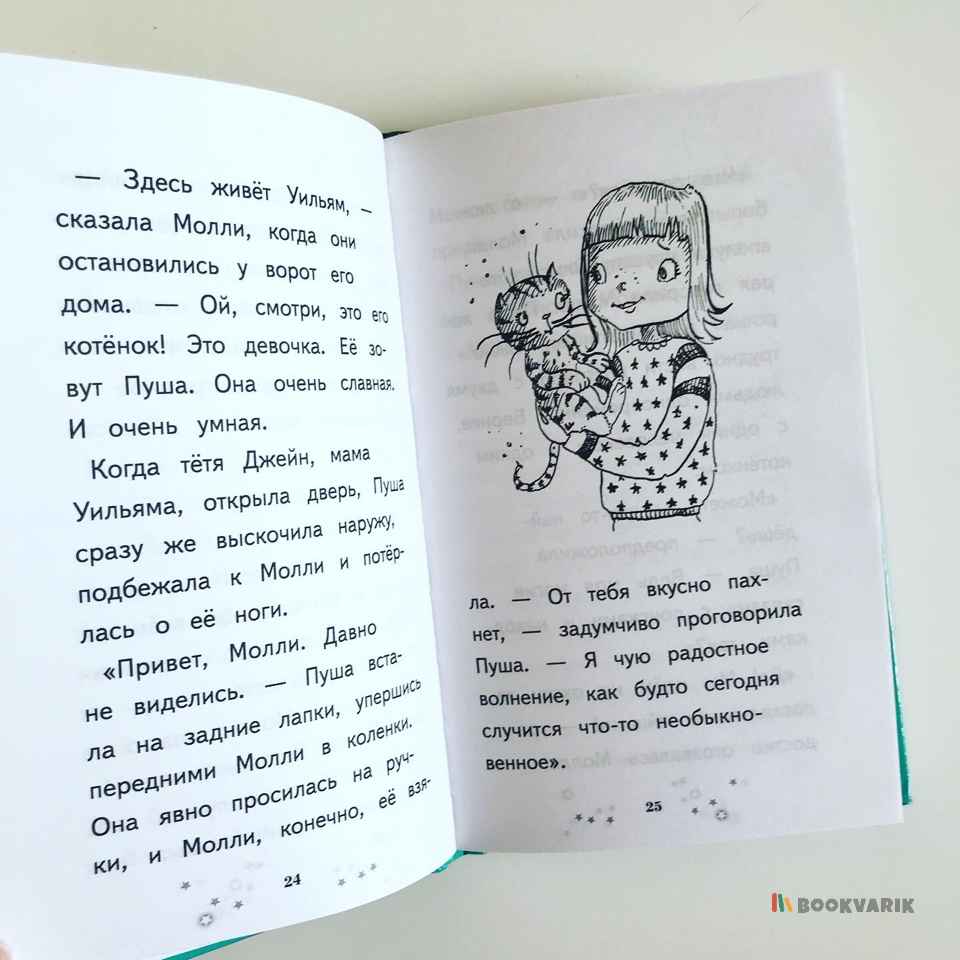 — Здесь живёт Уильям, –
сказала Молли, когда они
остановились у ворот его
дома. — Ой, смотри, это его
котёнок! Это девочка. Её зо-
вут Пуша. Она очень славная.
И очень умная.
Когда тётя Джейн, мама
Уильяма, открыла дверь, Пуша
сразу же выскочила наружу,
подбежала к Молли и потёр-
лась о её ноги.
«Привет, Молли. Давно
не виделись. — Пуша вста-
ла на задние лапки, упершись
передними Молли в коленки.
Она явно просилась на руч-
ки, и Молли, конечно, её взя-
24
ла. — От тебя вкусно пах-
нет, — задумчиво проговорила
Пуша. — Я чую радостное
волнение, как будто сегодня
случится что-то необыкно-
венное».
25
BOOKVARIK